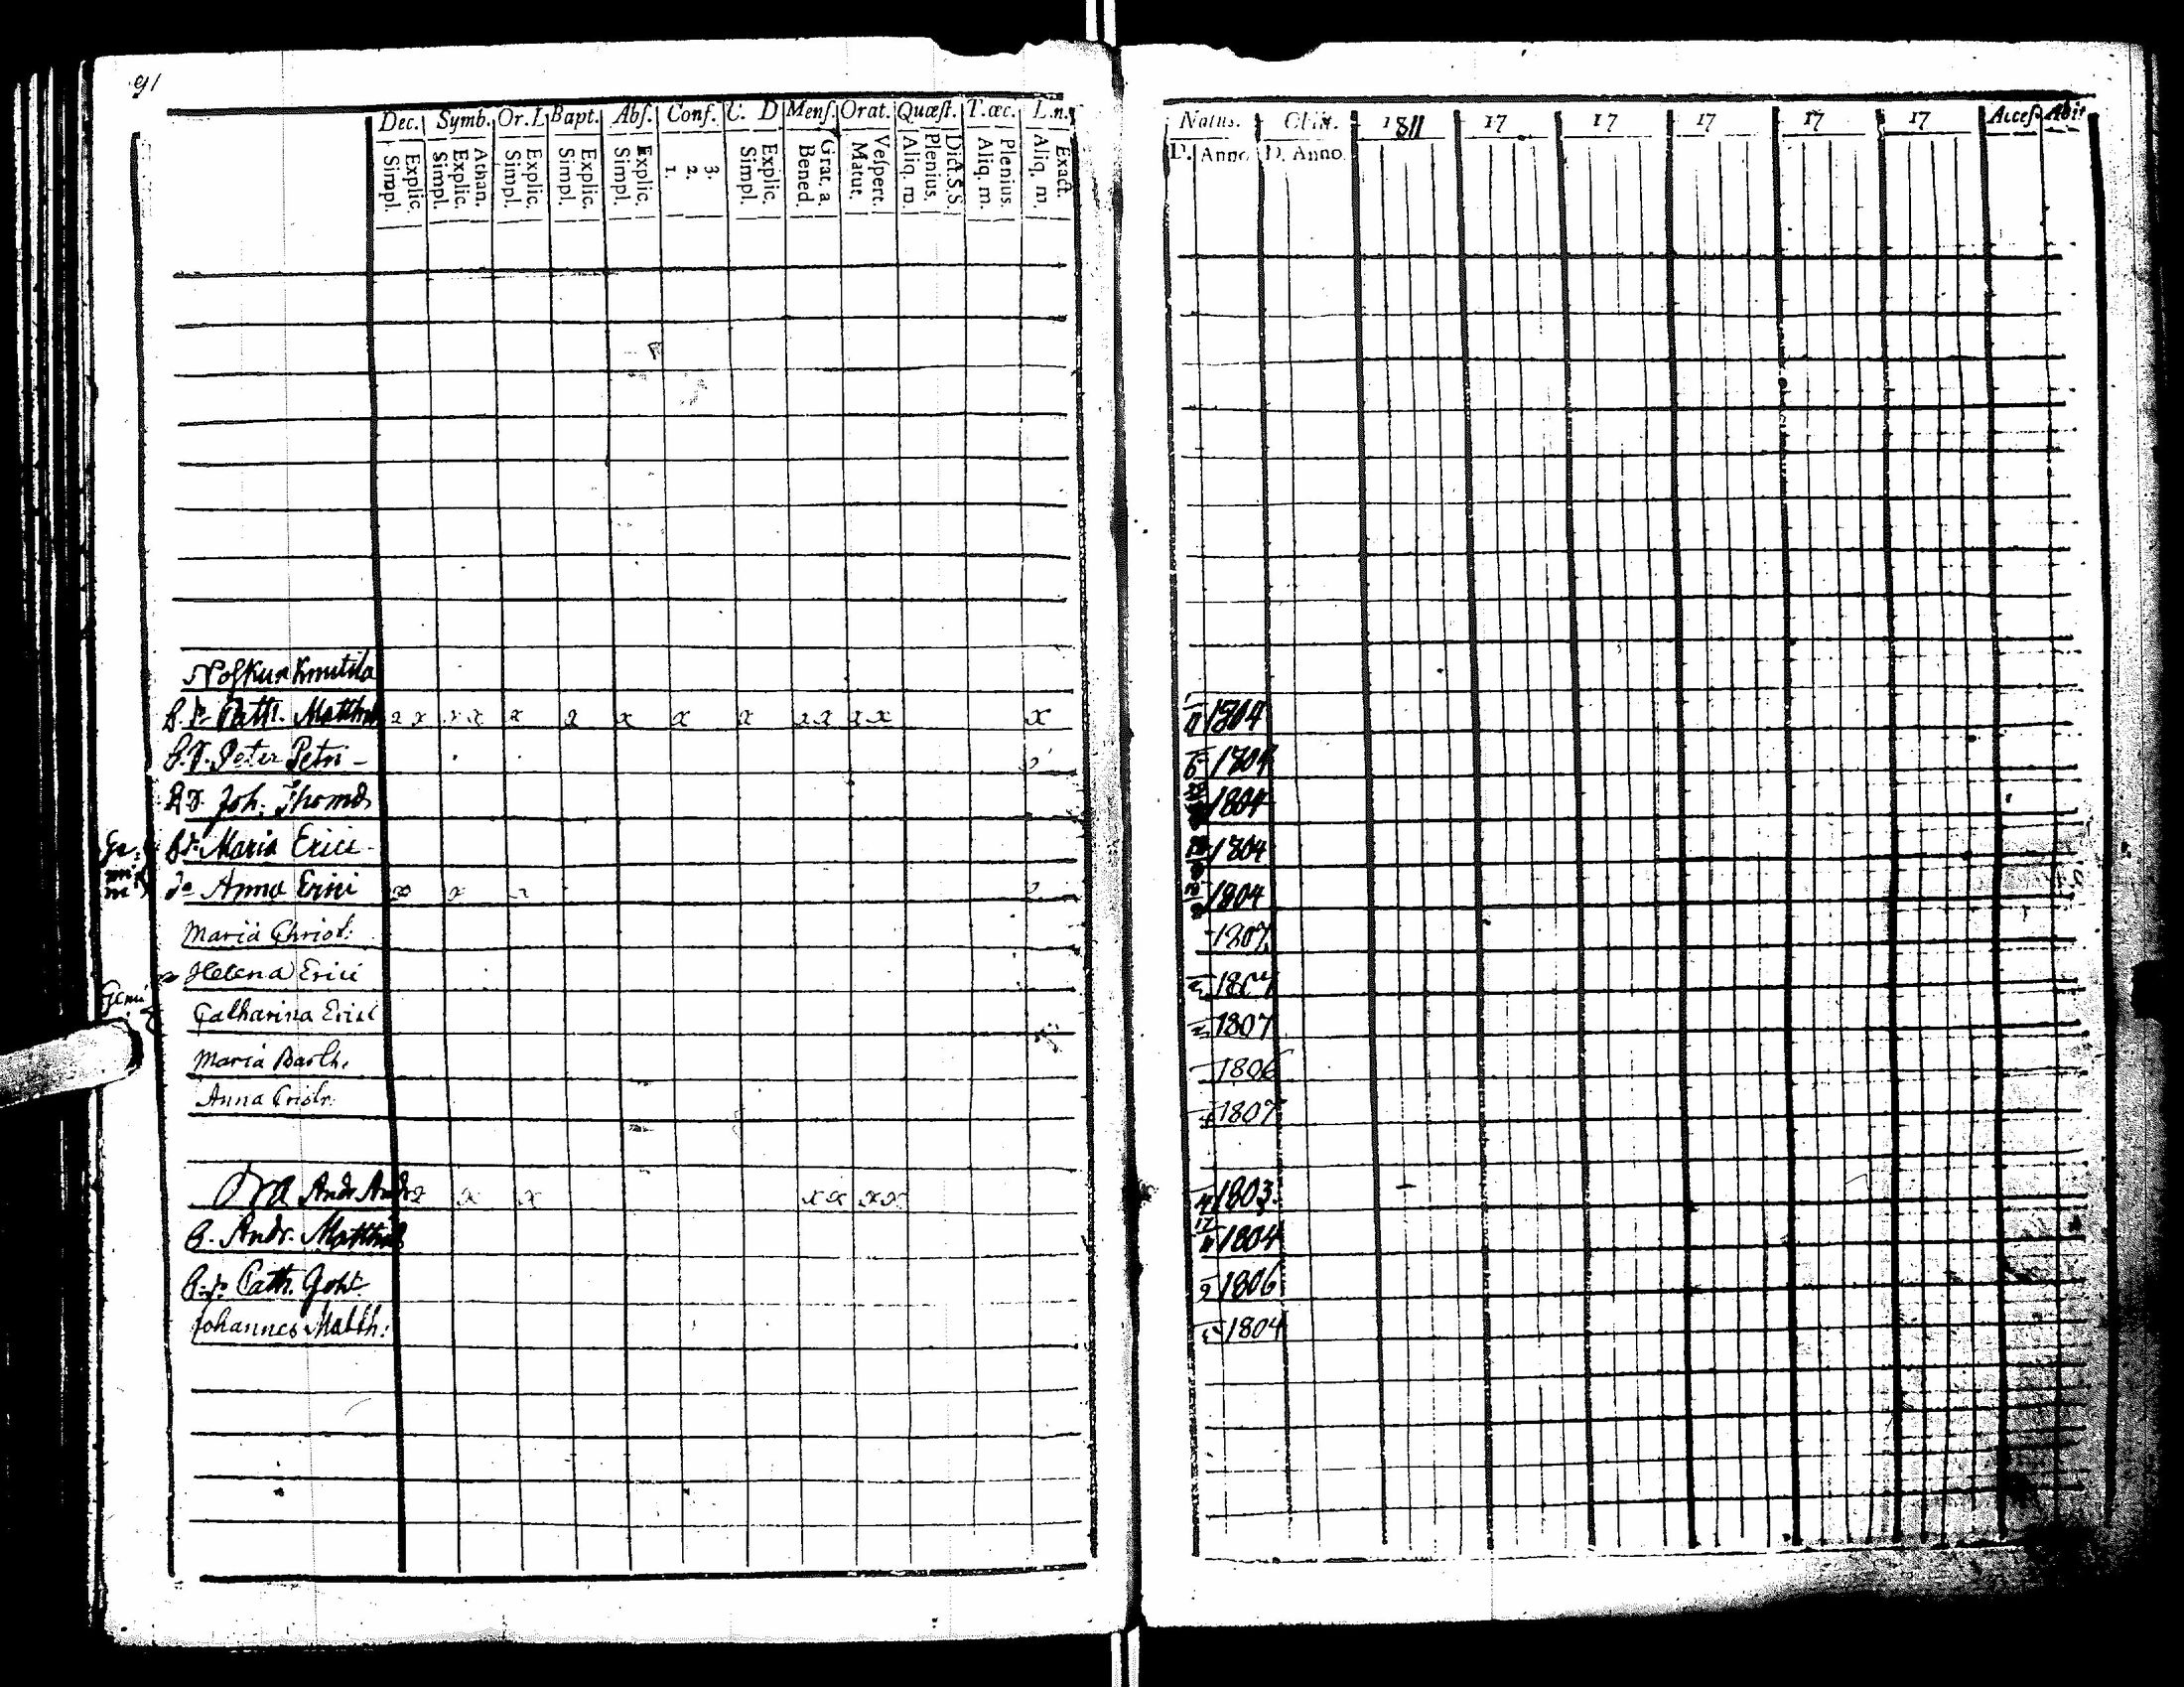 91
Dec. Symb. Or. L Bapt. Abſ. Conf. C. D Menſ. Orat. Quæſt. T. æc. L.n.
Simpl. Explic. Simpl. Explic. Athan. Simpl. Explic. Simpl. Explic. Simpl. Explic. 1. 2. 3. Simpl. Explic. Bened. Grat. a. Matut. Veſpert. Aliq. m. Plenius. Dict. S.S. Aliq. m. Plenius. Aliq. m. Exact.
Natus. Obiit. 1811 17 17 17 17 17 Acceſ. Abit
D. Anno D. Anno
Cath. Matth x x x x x x x x x x x x x x 1804
Peter Petri 1804
Joh. Thomæ 1804
Maria Erici 1804
Anna Erici x x x 1804
Maria Christ: 1807
Helena Erici 1807
Catharina Erici 1807
Maria Barth. 1806
Anna Cristr. 1807
Andr. Andr x x x x x x x 1803.
Andr. Matthiæ 1804
Cath. Joh 1806
Johannes Matth: 1804